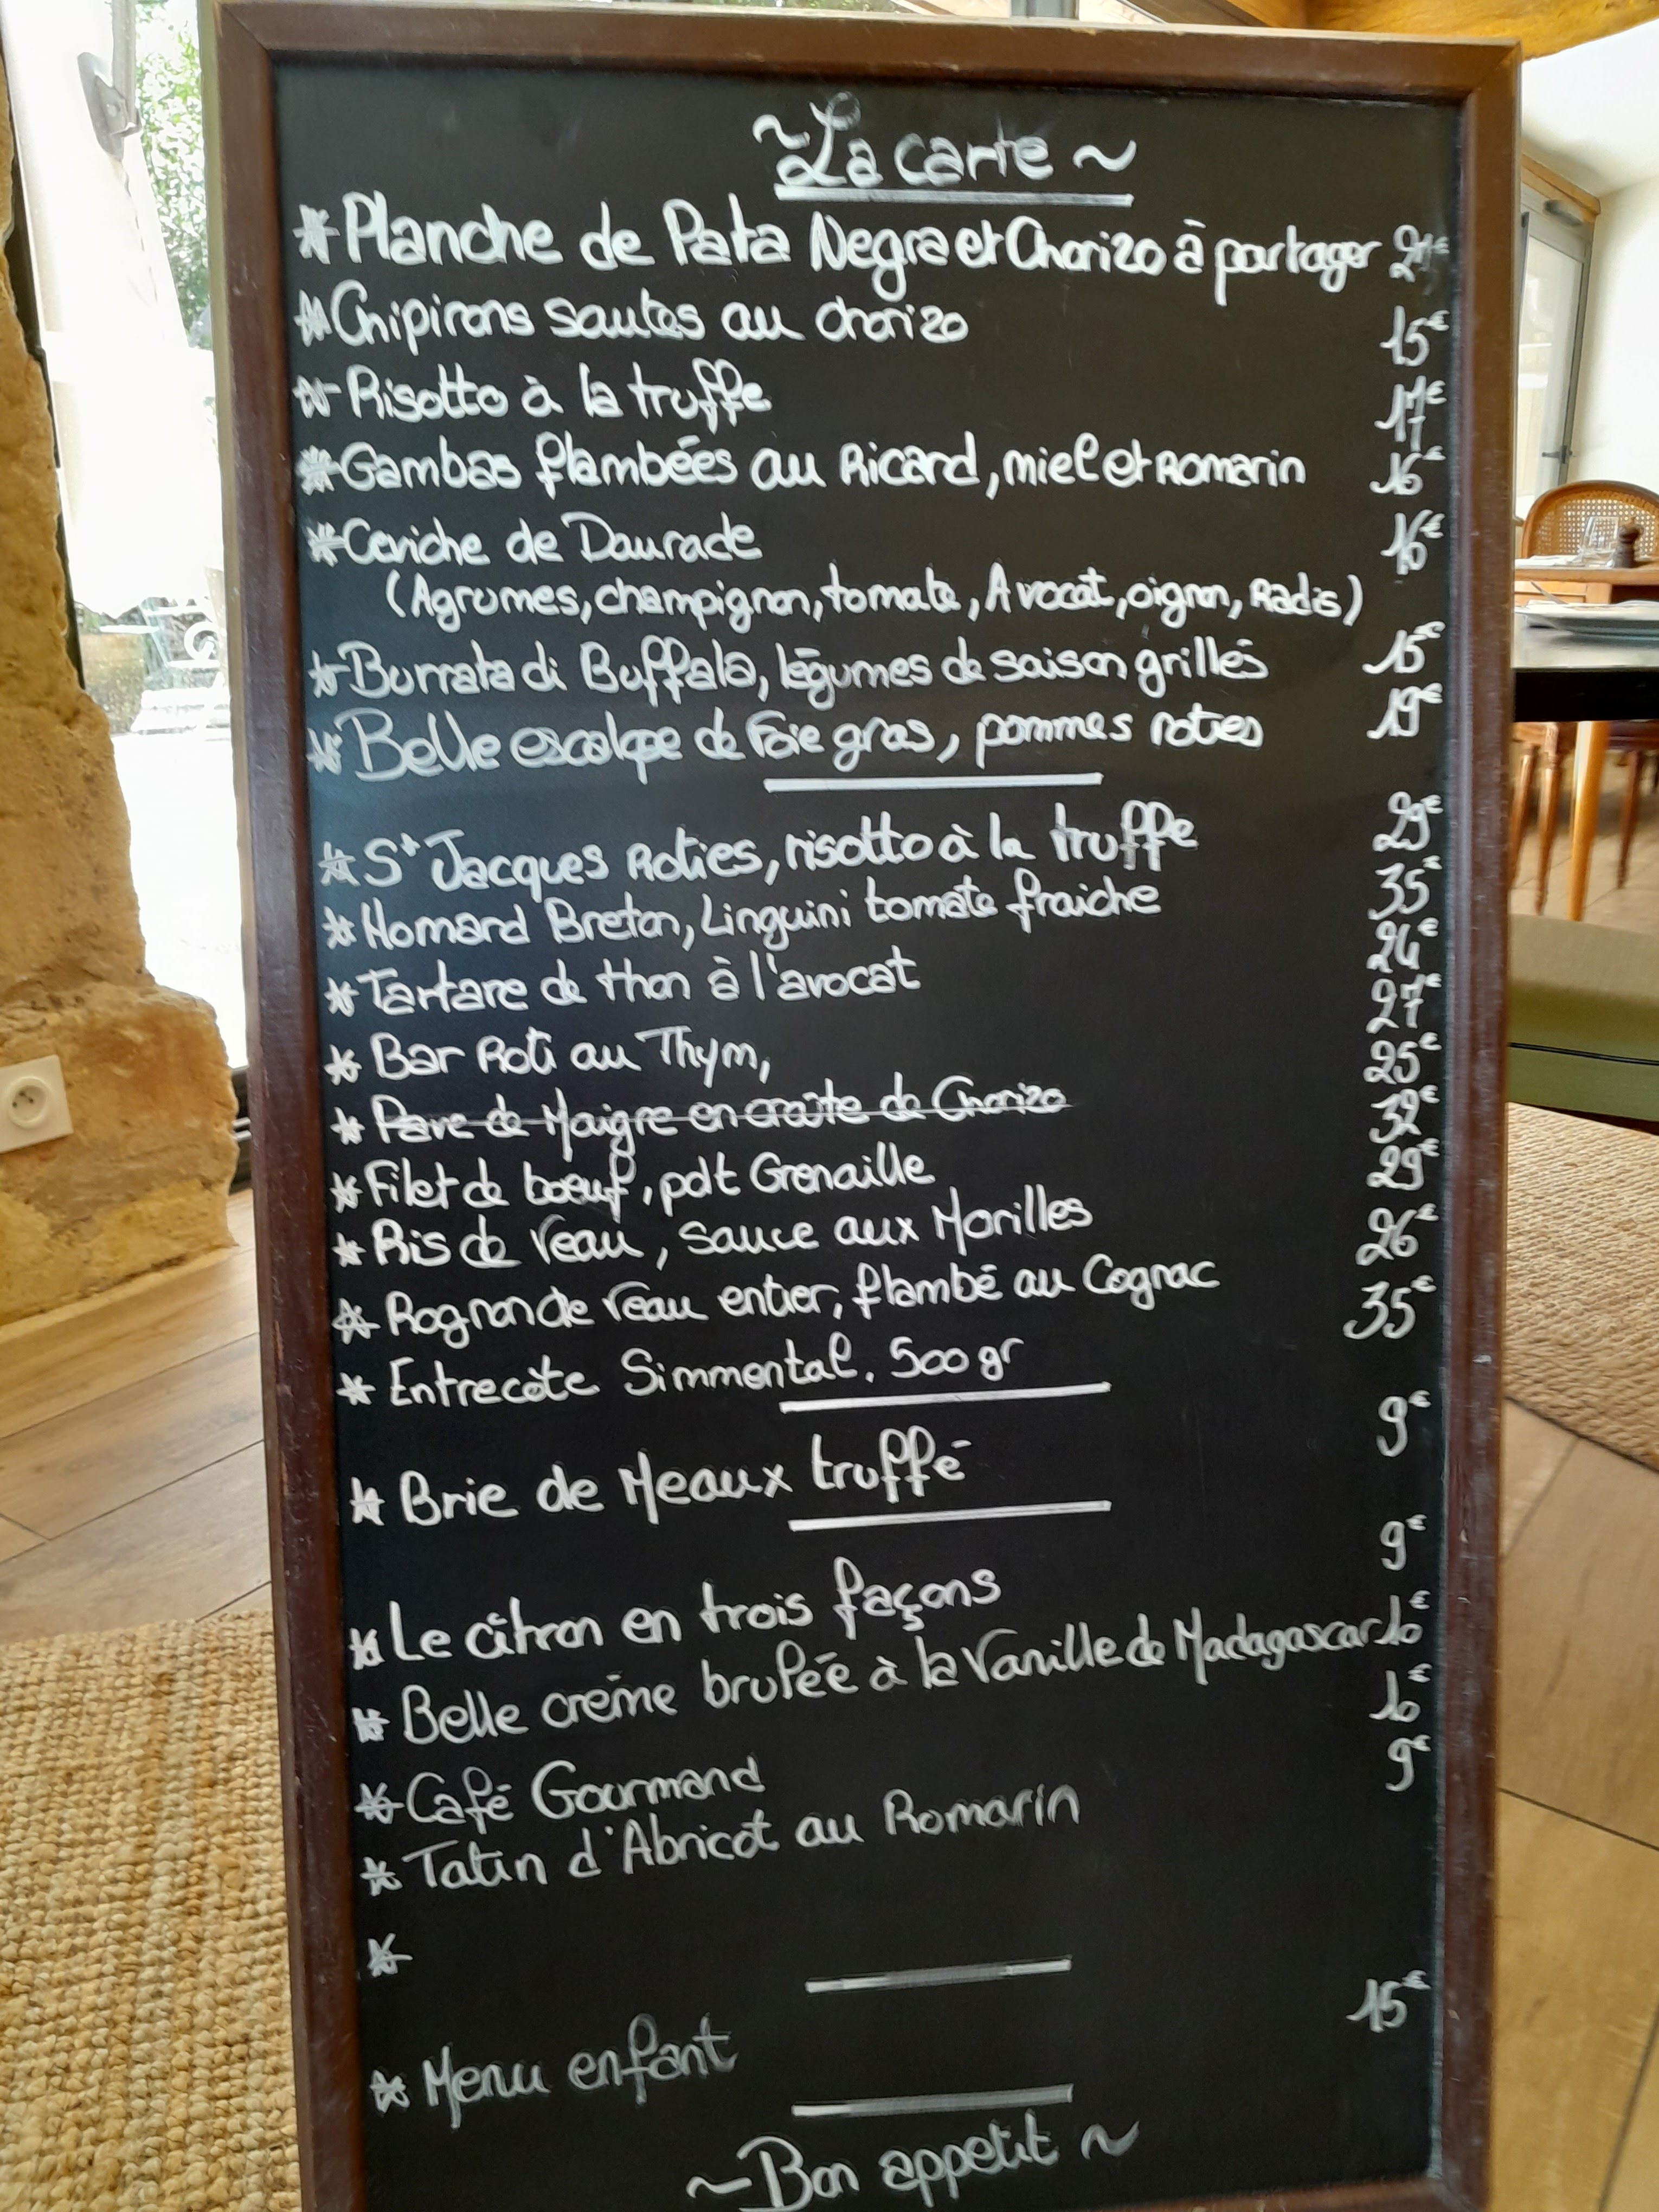 ~ La carte ~
* Planche de Pata Negra et Chorizo à partager 21€
* Chipirons sautés au chorizo 15€
* Risotto à la truffe 17€
* Gambas flambées au Ricard, miel et Romarin 16€
* Ceviche de Daurade 16€
(Agrumes, champignon, tomate, Avocat, oignon, Radis)
* Burrata di Buffala, légumes de saison grillés 15€
* Belle escalope de Foie gras, pommes roties 19€
* St Jacques Roties, risotto à la truffe 29€
* Homard Breton, Linguini tomate fraiche 35€
* Tartare de thon à l'avocat 24€
* Bar Roti au Thym, 27€
* Pavé de Maigre en croûte de Chorizo 25€
* Filet de boeuf, pdt Grenaille 32€
* Ris de Veau, sauce aux Morilles 29€
* Rognon de Veau entier, flambé au Cognac 26€
* Entrecôte Simmental. 500 gr 35€
* Brie de Meaux truffé 9€
* Le citron en trois façons 9€
* Belle crème brulée à la Vanille de Madagascar 10€
* Café Gourmand 10€
* Tatin d'Abricot au Romarin 9€
*
* Menu enfant 15€
~ Bon appetit ~